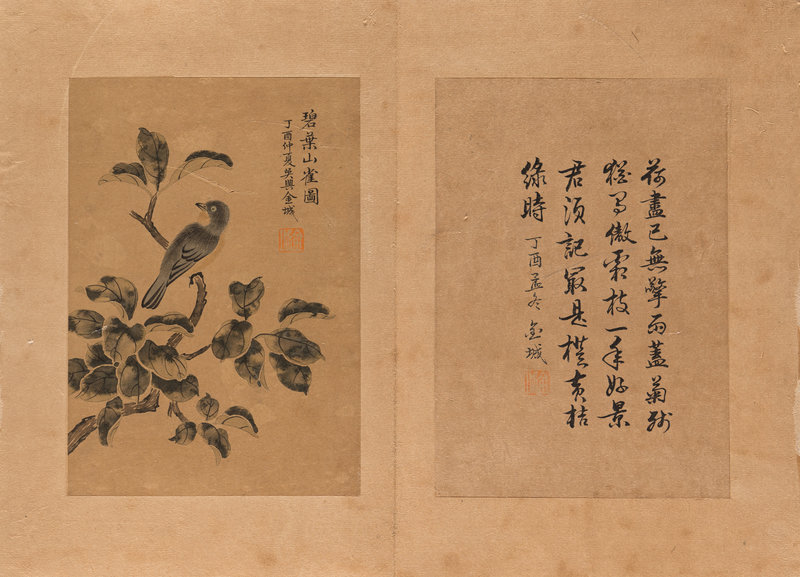 荷盡已無擎雨蓋菊殘
猶有傲霜枝一年好景
君須記最是橙黄桔
綠時
丁酉孟冬 金城
碧葉山雀圖
丁酉仲夏吴興金城